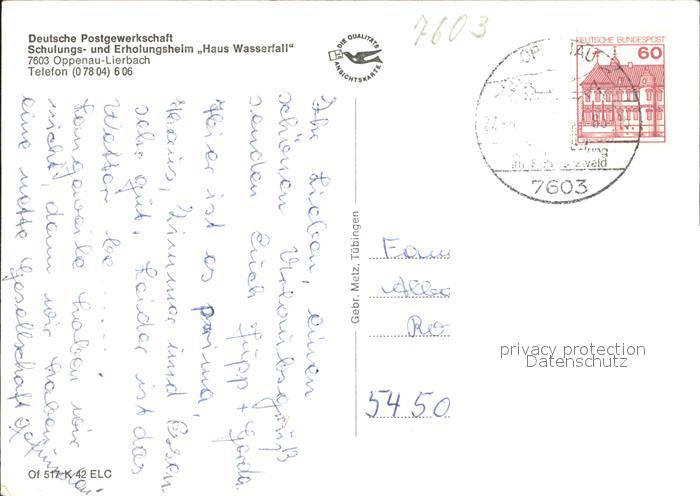 Deutsche Postgewerkschaft
Schulungs- und Erholungsheim „Haus Wasserfall"
7603 Oppenau-Lierbach
Telefon (0 78 04) 6 06
DIE QUALITÄTS
ANSICHTSKARTE
7603
DEUTSCHE BUNDESPOST
60
OPPENAU
im Schwarzwald
7603
Ihr Lieben, einen
schönen Urlaubsgruß
senden Euch Jupp + Gerda.
Hier ist es prima,
Haus, Zimmer und Essen
sehr gut. Leider ist das
Wetter be.....
Langeweile haben wir
nicht, denn wir haben
eine nette Gesellschaft gefunden.
Gebr. Metz, Tübingen
Fam
Ro
5450
privacy protection
Datenschutz
Of 517 K 42 ELC